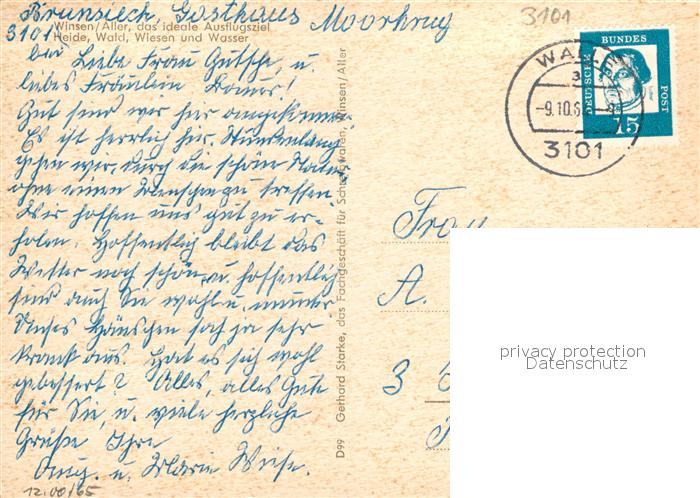 Brunsiek, Gasthaus Moorkrug
3101
Winsen/Aller, das ideale Ausflugsziel
Heide, Wald, Wiesen und Wasser
Liebe Frau Gutsche, u.
liebes Fräulein
Gut sind wir hier angekommen.
Es ist herrlich hier, Stundenlang
gehen wir durch die schöne Natur,
ohne einen Menschen zu treffen.
Wir hoffen uns gut zu er-
holen. Hoffentlich bleibt das
Wetter noch schön u. hoffentlich
sind auch Sie wohl u. munter
Häuschen sah ja sehr
krank aus. Hat es sich wohl
gebessert? Alles, alles Gute
für Sie, u. viele herzliche
Grüße Ihre
Aug. u. Marie Wiese.
12.00/65
D99 Gerhard Starke, das Fachgeschäft für Schreibwaren, Winsen/Aller
3101
WALLE
-9.10.6
3101
DEUTSCHE BUNDES POST
15
Frau
A.
3
privacy protection
Datenschutz